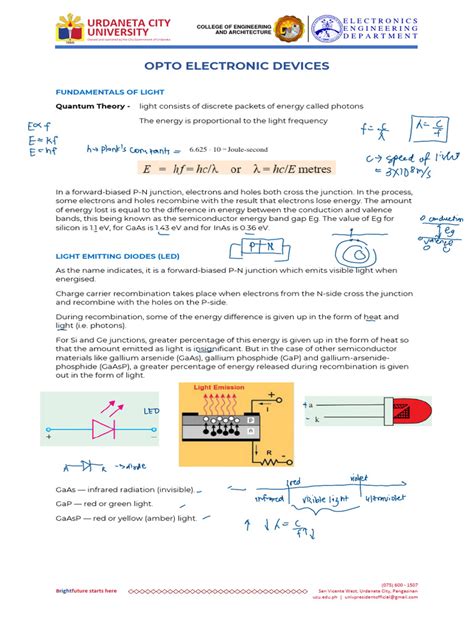 URDANETA CITY
UNIVERSITY
COLLEGE OF ENGINEERING
AND ARCHITECTURE
ELECTRONICS
ENGINEERING
DEPARTMENT
OPTO ELECTRONIC DEVICES
FUNDAMENTALS OF LIGHT
Quantum Theory - light consists of discrete packets of energy called photons
The energy is proportional to the light frequency
E∝f
E=kf
E=hf
h→ plank's constant = 6.625 · 10⁻³⁴ Joule-second
f = c/λ
λ = c/f
c → speed of light
= 3×10⁸ m/s
E = hf = hc/λ or λ = hc/E metres
In a forward-biased P-N junction, electrons and holes both cross the junction. In the process,
some electrons and holes recombine with the result that electrons lose energy. The amount
of energy lost is equal to the difference in energy between the conduction and valence
bands, this being known as the semiconductor energy band gap Eg. The value of Eg for
silicon is 1.1 eV, for GaAs is 1.43 eV and for InAs is 0.36 eV.
conduction
Eg
valence
P N
LIGHT EMITTING DIODES (LED)
As the name indicates, it is a forward-biased P-N junction which emits visible light when
energised.
Charge carrier recombination takes place when electrons from the N-side cross the junction
and recombine with the holes on the P-side.
During recombination, some of the energy difference is given up in the form of heat and
light (i.e. photons).
For Si and Ge junctions, greater percentage of this energy is given up in the form of heat so
that the amount emitted as light is insignificant. But in the case of other semiconductor
materials like gallium arsenide (GaAs), gallium phosphide (GaP) and gallium-arsenide-
phosphide (GaAsP), a greater percentage of energy released during recombination is given
out in the form of light.
LED
+ -
Light Emission
+
I
R
-
+ a
- k
A K → diode
GaAs — infrared radiation (invisible).
GaP — red or green light.
GaAsP — red or yellow (amber) light.
red violet
infrared visible light ultraviolet
↑ ↓ λ = c/f ↑↓
Brightfuture starts here
(075) 600 - 1507
San Vicente West, Urdaneta City, Pangasinan
ucu.edu.ph